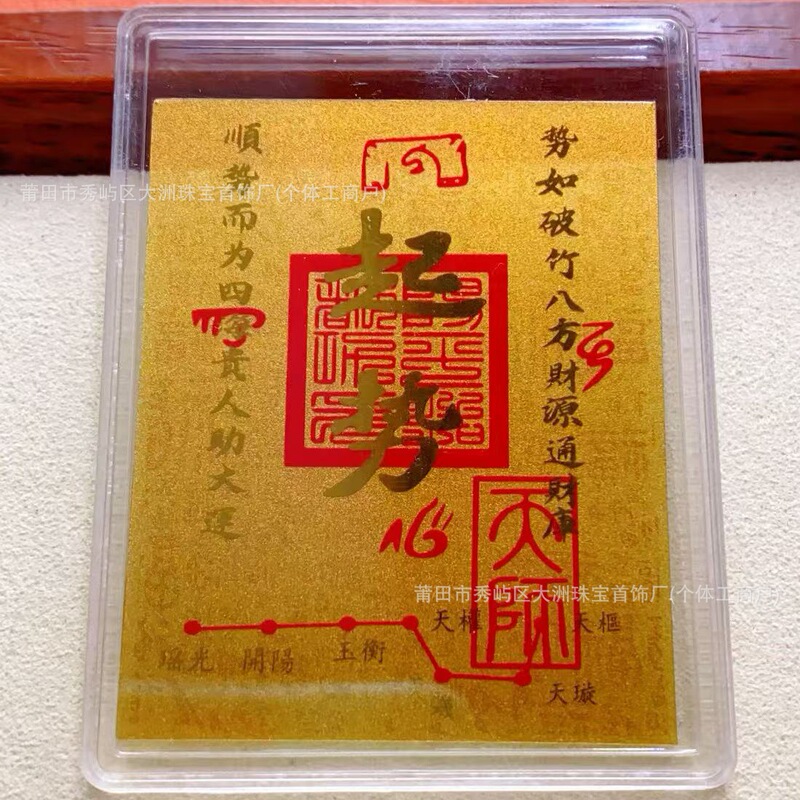 勢如破竹八方財源通財庫
起势
順勢而为四海贵人助大運
天師
天權
天樞
瑶光
開陽
玉衡
天璇
莆田市秀屿区大洲珠宝首饰厂(个体工商户)
莆田市秀屿区大洲珠宝首饰厂(个体工商户)